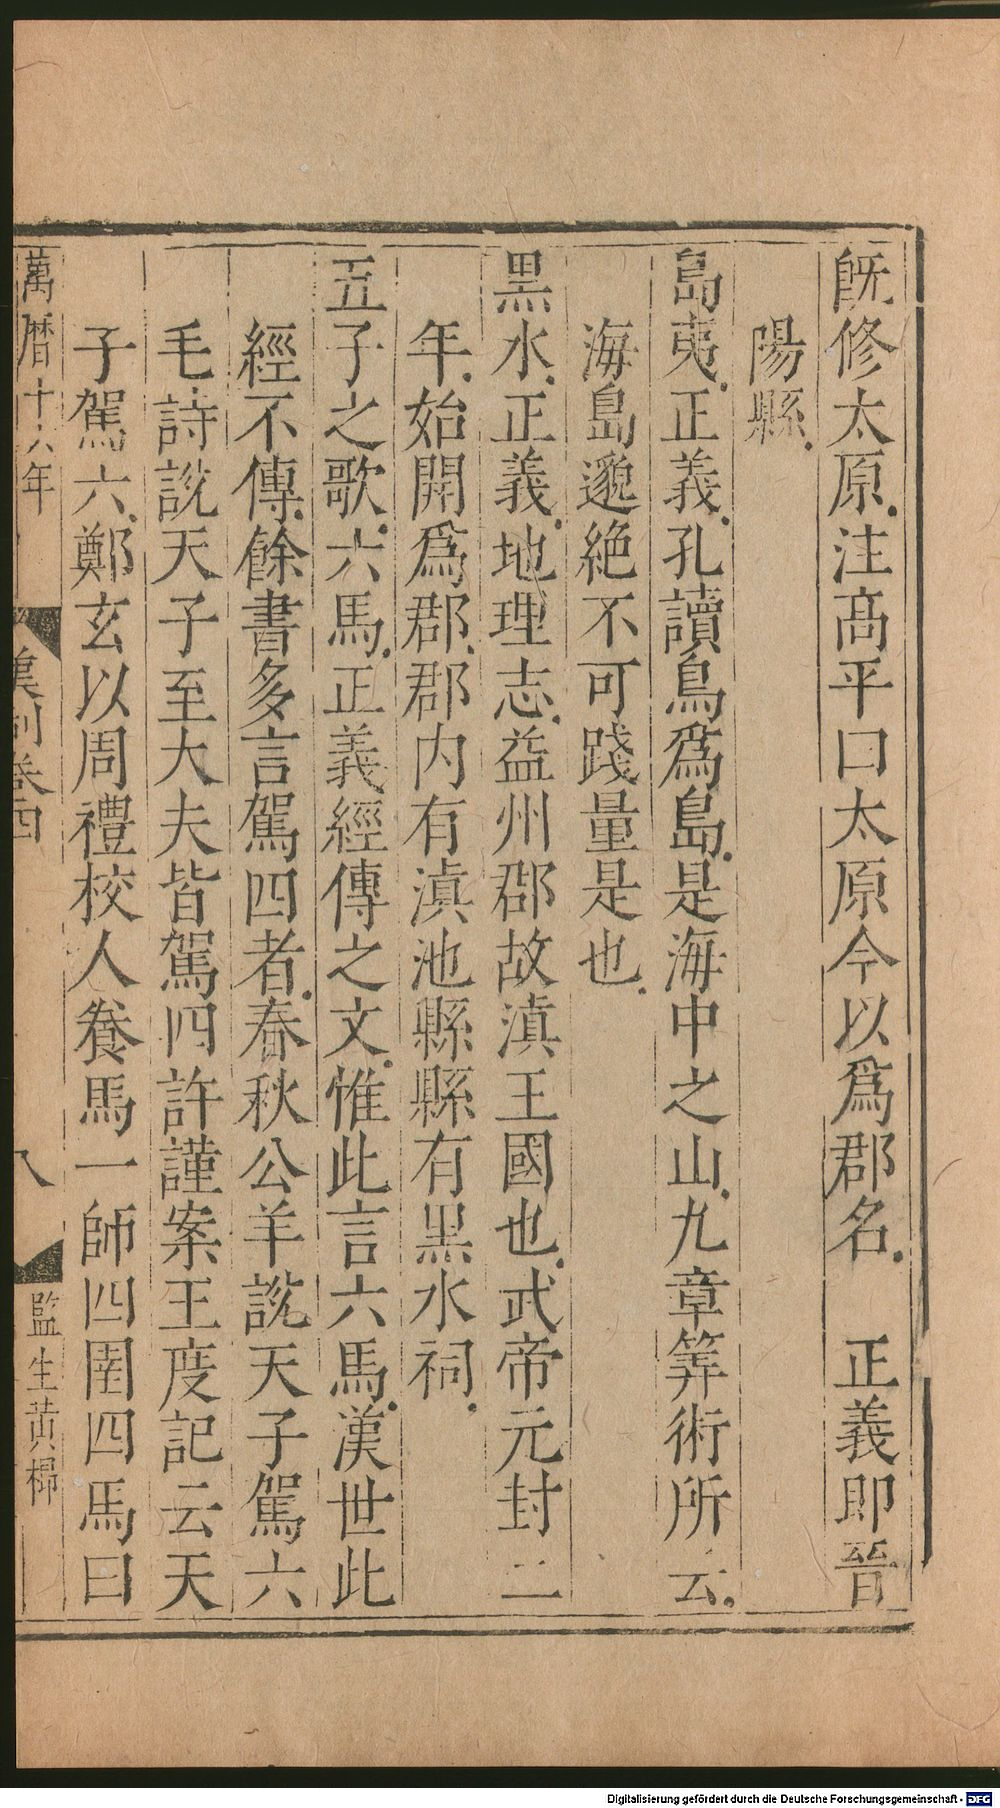 旣修太原注高平曰太原今以爲郡名　正義即晉
陽縣
島夷正義孔讀鳥爲島是海中之山九章筭術所云
海島邈絶不可踐量是也
黒水正義地理志益州郡故滇王國也武帝元封二
年始開爲郡郡内有滇池縣縣有黒水祠
五子之歌六馬正義經傳之文惟此言六馬漢世此
經不傳餘書多言駕四者春秋公羊說天子駕六
毛詩說天子至大夫皆駕四許謹案王度記云天
子駕六鄭玄以周禮校人養馬一師四圉四馬曰
萬暦十六年
漢制卷四
八
監生黄
Digitalisierung gefördert durch die Deutsche Forschungsgemeinschaft - DFG